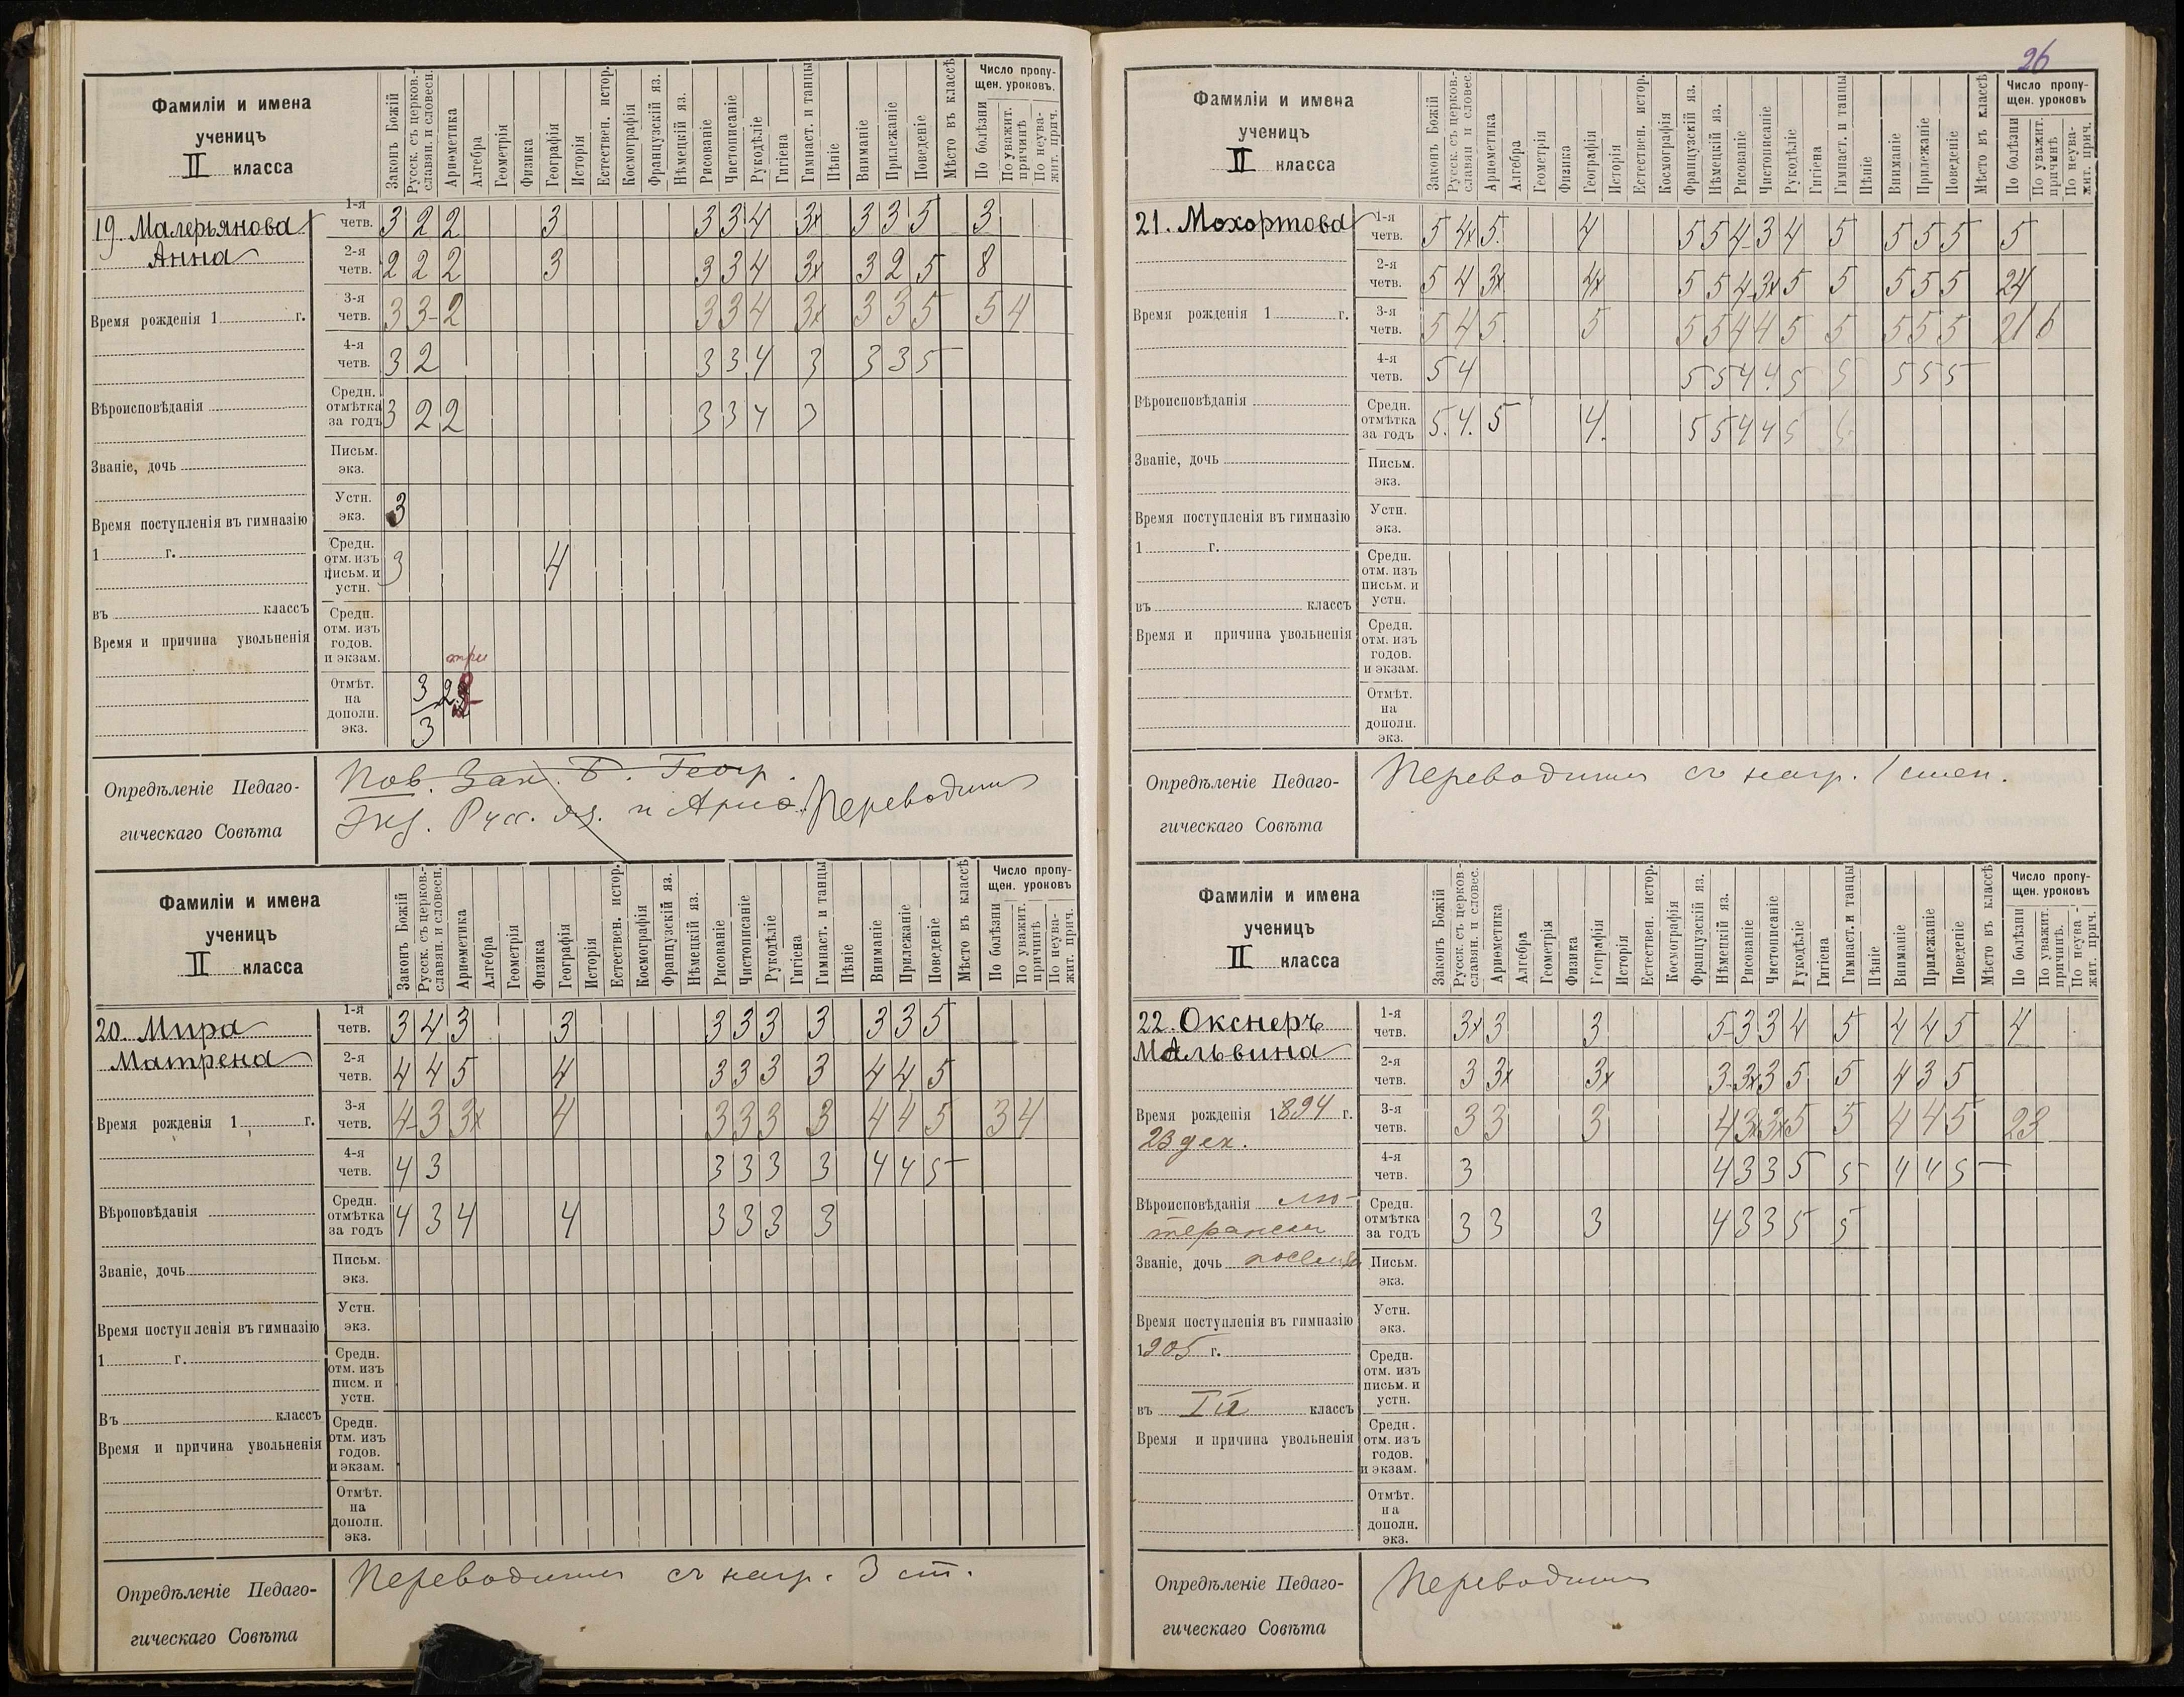 26
Фамиліи и имена
ученицъ
II класса
Законъ Божій
Русск. съ церков.-славян. и словесн.
Ариѳметика
Алгебра
Геометрія
Физика
Географія
Исторія
Естествен. истор.
Космографія
Французскій яз.
Нѣмецкій яз.
Рисованіе
Чистописаніе
Рукодѣліе
Гигіена
Гимнаст. и танцы
Пѣніе
Вниманіе
Прилежаніе
Поведеніе
Мѣсто въ классѣ
Число пропу-
щен. уроковъ.
По болѣзни
По уважит. причинѣ
По неува-жит. прич.
19. Малерьянова
Анна
Время рожденія 1 г.
Вѣроисповѣданія
Званіе, дочь
Время поступленія въ гимназію
1 г.
въ классъ
Время и причина увольненія
1-я четв. 3 2 2 3 3 3 4 3x 3 3 5 3
2-я четв. 2 2 2 3 3 3 4 3x 3 2 5 8
3-я четв. 3 3- 2 3 3 4 3x 3 3 5 5 4
4-я четв. 3 2 3 3 4 3 3 3 5
Средн. отмѣтка за годъ 3 2 2 3 3 4 3
Письм. экз.
Устн. экз. 3
Средн. отм. изъ письм. и устн. 3 4
Средн. отм. изъ годов. и экзам.
три
Отмѣт. на дополн. экз. 3 2
3
Опредѣленіе Педаго-
гическаго Совѣта
Пов. Зак. Б. Геогр.
Экз. Русс. яз. и Арио. Переводит
Фамиліи и имена
ученицъ
II класса
Законъ Божій
Русск. съ церков.-славян. и словесн.
Ариѳметика
Алгебра
Геометрія
Физика
Географія
Исторія
Естествен. истор.
Космографія
Французскій яз.
Нѣмецкій яз.
Рисованіе
Чистописаніе
Рукодѣліе
Гигіена
Гимнаст. и танцы
Пѣніе
Вниманіе
Прилежаніе
Поведеніе
Мѣсто въ классѣ
Число пропу-
щен. уроковъ
По болѣзни
По уважит. причинѣ
По неува-жит. прич.
20. Мира
Матрена
Время рожденія 1 г.
Вѣроповѣданія
Званіе, дочь
Время поступленія въ гимназію
1 г.
Въ классъ
Время и причина увольненія
1-я четв. 3 4 3 3 3 3 3 3 3 3 5
2-я четв. 4 4 5 4 3 3 3 3 4 4 5
3-я четв. 4- 3 3x 4 3 3 3 3 4 4 5 3 4
4-я четв. 4 3 3 3 3 3 4 4 5
Средн. отмѣтка за годъ 4 3 4 4 3 3 3 3
Письм. экз.
Устн. экз.
Средн. отм. изъ писм. и устн.
Средн. отм. изъ годов. и экзам.
Отмѣт. на дополн. экз.
Опредѣленіе Педаго-
гическаго Совѣта
съ нагр. 3 ст.
Фамиліи и имена
ученицъ
II класса
Законъ Божій
Русск. съ церков.-славян и словес.
Ариѳметика
Алгебра
Геометрія
Физика
Географія
Исторія
Естествен. истор.
Космографія
Французскій яз.
Нѣмецкій яз.
Рисованіе
Чистописаніе
Рукодѣліе
Гигіена
Гимнаст. и танцы
Пѣніе
Вниманіе
Прилежаніе
Поведеніе
Мѣсто въ классѣ
Число пропу-
щен. уроковъ
По болѣзни
По уважит. причинѣ
По неува-жит. прич.
21. Мохортова
Время рожденія 1 г.
Вѣроисповѣданія
Званіе, дочь
Время поступленія въ гимназію
1 г.
въ классъ
Время и причина увольненія
1-я четв. 5 4x 5. 4 5 5 4- 3 4 5 5 5 5 5
2-я четв. 5 4 3x 4x 5 5 4- 3x 5 5 5 5 5 24
3-я четв. 5 4 5. 5 5 5 4 4 5 5 5 5 5 21 6
4-я четв. 5 4 5 5 4 4 5 5 5 5 5
Средн. отмѣтка за годъ 5. 4. 5 4. 5 5 4 4 5 5
Письм. экз.
Устн. экз.
Средн. отм. изъ письм. и устн.
Средн. отм. изъ годов. и экзам.
Отмѣт. на дополн. экз.
Опредѣленіе Педаго-
гическаго Совѣта
съ нагр. 1 степ.
Фамиліи и имена
ученицъ
II класса
Законъ Божій
Русск. съ церков-славян. и словес.
Ариѳметика
Алгебра
Геометрія
Физика
Географія
Исторія
Естествен. истор.
Космографія
Французскій яз.
Нѣмецкій яз.
Рисованіе
Чистописаніе
Рукодѣліе
Гигіена
Гимнаст. и танцы
Пѣніе
Вниманіе
Прилежаніе
Поведеніе
Мѣсто въ классѣ
Число пропу-
щен. уроковъ
По болѣзни
По уважит. причинѣ.
По неува-жит. прич.
22. Окснеръ
Мальвина
Время рожденія 1894 г.
23 дек.
Вѣроисповѣданія лю-
теранск
Званіе, дочь
Время поступленія въ гимназію
1905 г.
въ классъ
Время и причина увольненія
1-я четв. 3x 3 3 5- 3 3 4 5 4 4 5 4
2-я четв. 3 3x 3x 3- 3x 3 5 5 4 3 5
3-я четв. 3 3 3 4 3x 3x 5 5 4 4 5 23
4-я четв. 3 4 3 3 5 5 4 4 5
Средн. отмѣтка за годъ 3 3 3 4 3 3 5 5
Письм. экз.
Устн. экз.
Средн. отм. изъ письм. и устн.
Средн. отм. изъ годов. и экзам.
Отмѣт. на дополн. экз.
Опредѣленіе Педаго-
гическаго Совѣта